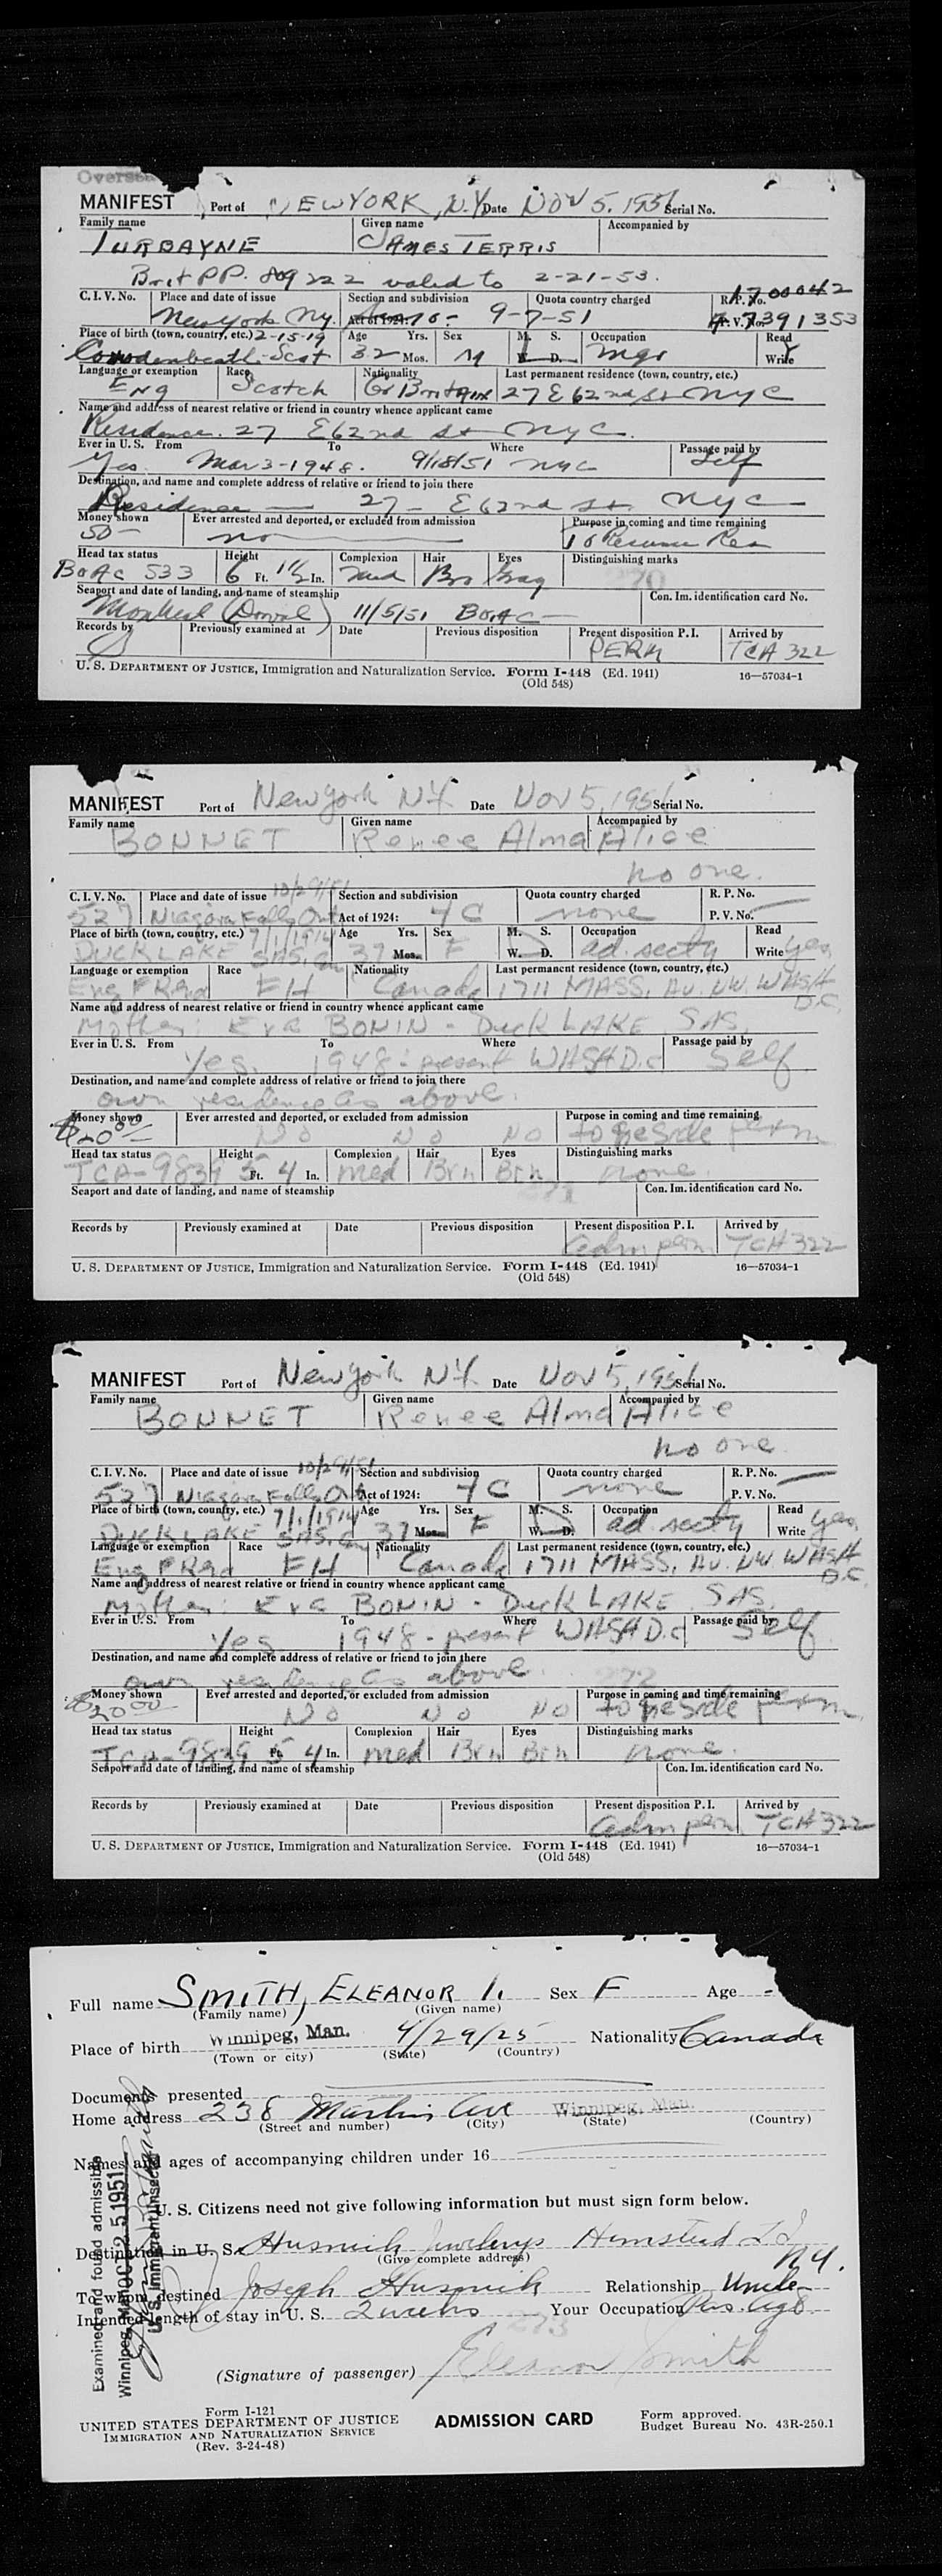 MANIFEST Port of NEW YORK, N.Y. Date NOV 5, 1951 Serial No.
Family name Given name Accompanied by
TURBAYNE JAMES TERRIS
Brit PP. 809222 valid to 2-21-53.
C. I. V. No. Place and date of issue Section and subdivision Quota country charged R. P. No. 1700042
New York NY. Act of 1924: 9-7-51 P. V. No. 7391353
Place of birth (town, country, etc.) 2-15-19 Age Yrs. Sex M. S. Occupation Read
Cowdenbeath-Scot 32 Mos. M W. D. Mgr Write Y
Language or exemption Race Nationality Last permanent residence (town, country, etc.)
Eng Scotch Gr Britain 27 E 62nd St NYC
Name and address of nearest relative or friend in country whence applicant came
Residence. 27 E 62nd St NYC.
Ever in U. S. From To Where Passage paid by
Yes Mar 3-1948. 9/18/51 NYC Self
Destination, and name and complete address of relative or friend to join there
Residence — 27 - E 62nd St. NYC
Money shown Ever arrested and deported, or excluded from admission Purpose in coming and time remaining
50- no To Resume Res
Head tax status Height Complexion Hair Eyes Distinguishing marks
BOAC 533 6 Ft. 1 1/2 In. Med Bro Gray
Seaport and date of landing, and name of steamship Con. Im. identification card No.
Montreal (Dorval) 11/5/51 BOAC
Records by Previously examined at Date Previous disposition Present disposition P. I. Arrived by
PERM TCA 322
U. S. DEPARTMENT OF JUSTICE, Immigration and Naturalization Service. Form I-448 (Ed. 1941) 16—57034-1
(Old 548)
MANIFEST Port of New York NY. Date Nov 5, 1951 Serial No.
Family name Given name Accompanied by
BONNET Renee Alma Alice
no one.
C. I. V. No. Place and date of issue 10/29/51 Section and subdivision Quota country charged R. P. No.
527 Niagara Falls Ont Act of 1924: 4C none P. V. No.
Place of birth (town, country, etc.) 7/1/1914 Age Yrs. Sex M. S. Occupation Read
DUCK LAKE SAS. 37 Mos. F W. D. ad. secty Write yes
Language or exemption Race Nationality Last permanent residence (town, country, etc.)
Eng FH Canada 1711 MASS. Av. NW. WASH D.C.
Name and address of nearest relative or friend in country whence applicant came
Mother: Eva BONIN - Duck LAKE SAS.
Ever in U. S. From To Where Passage paid by
Yes 1948 - present WASH D.C Self
Destination, and name and complete address of relative or friend to join there
own residence as above.
Money shown Ever arrested and deported, or excluded from admission Purpose in coming and time remaining
$20.00 No No No to reside perm
Head tax status Height Complexion Hair Eyes Distinguishing marks
TCA-9839 5 Ft. 4 In. med Brn Brn none.
Seaport and date of landing, and name of steamship Con. Im. identification card No.
Records by Previously examined at Date Previous disposition Present disposition P. I. Arrived by
adm perm TCA 322
U. S. DEPARTMENT OF JUSTICE, Immigration and Naturalization Service. Form I-448 (Ed. 1941) 16—57034-1
(Old 548)
MANIFEST Port of New York NY. Date Nov 5, 1951 Serial No.
Family name Given name Accompanied by
BONNET Renee Alma Alice
no one.
C. I. V. No. Place and date of issue 10/29/51 Section and subdivision Quota country charged R. P. No.
527 Niagara Falls Ont Act of 1924: 4C none P. V. No.
Place of birth (town, country, etc.) 7/1/1914 Age Yrs. Sex M. S. Occupation Read
DUCK LAKE SAS. 37 Mos. F W. D. ad. secty Write yes
Language or exemption Race Nationality Last permanent residence (town, country, etc.)
Eng FH Canada 1711 MASS. Av. NW WASH D.C.
Name and address of nearest relative or friend in country whence applicant came
Mother: Eva BONIN - Duck LAKE SAS.
Ever in U. S. From To Where Passage paid by
Yes 1948 - present WASH D.C Self
Destination, and name and complete address of relative or friend to join there
own residence as above. 272
Money shown Ever arrested and deported, or excluded from admission Purpose in coming and time remaining
$20.00 No No No to reside perm
Head tax status Height Complexion Hair Eyes Distinguishing marks
TCA-9839 5 Ft. 4 In. med Brn Brn none.
Seaport and date of landing, and name of steamship Con. Im. identification card No.
Records by Previously examined at Date Previous disposition Present disposition P. I. Arrived by
adm perm TCA 322
U. S. DEPARTMENT OF JUSTICE, Immigration and Naturalization Service. Form I-448 (Ed. 1941) 16—57034-1
(Old 548)
Full name SMITH, ELEANOR I. Sex F Age
(Family name) (Given name)
Place of birth Winnipeg, Man. 4/29/25 Nationality Canada
(Town or city) (State) (Country)
Documents presented
Home address 238 Martin Ave Winnipeg, Man.
(Street and number) (City) (State) (Country)
Names and ages of accompanying children under 16
U. S. Citizens need not give following information but must sign form below.
Destination in U. S. Husnick Jewelrys Hemstead L I N.Y.
(Give complete address)
To whom destined Joseph Husnick Relationship Uncle
Intended length of stay in U. S. 2 weeks Your Occupation
273
(Signature of passenger) Eleanor Smith
Examined and found admissible
Winnipeg, Man OCT 25 1951
U. S. Immigrant Inspector
Form I-121
UNITED STATES DEPARTMENT OF JUSTICE
IMMIGRATION AND NATURALIZATION SERVICE
(Rev. 3-24-48)
ADMISSION CARD
Form approved.
Budget Bureau No. 43R-250.1